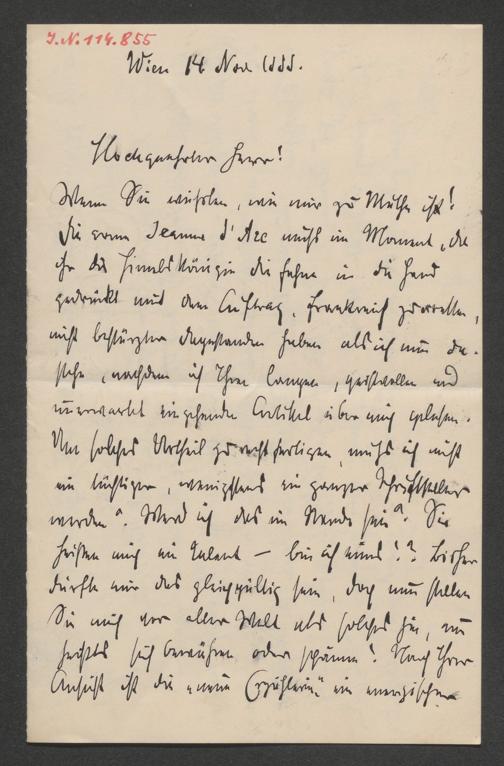 J.N. 114.855
Wien 14 Nov 1885.
Hochgeehrter Herr!
Wenn Sie wüßten, wie mir zu Muthe ist!
Die arme Jeanne d'Arc muß im Moment, da
ihr die Himmelskönigin die Fahne in die Hand
gedrückt mit dem Auftrag, Frankreich zu retten,
nicht bestürzter dagestanden haben als ich nun da-
stehe, nachdem ich Ihren langen, geistvollen und
unerwartet eingehenden Artikel über mich gelesen.
Um solches Urtheil zu rechtfertigen, muß ich nicht
ein tüchtiger, wenigstens ein ganzer Schriftsteller
werden. Werd ich das im Stande sein? Sie
heißen mich ein Talent – bin ich eines?? Bisher
durfte mir das gleichgültig sein, doch nun stellen
Sie mich vor aller Welt als solches hin, nun
heißts sich bewähren oder schämen! Nach Ihrer
Ansicht ist die „neue Erzählerin" ein energischer